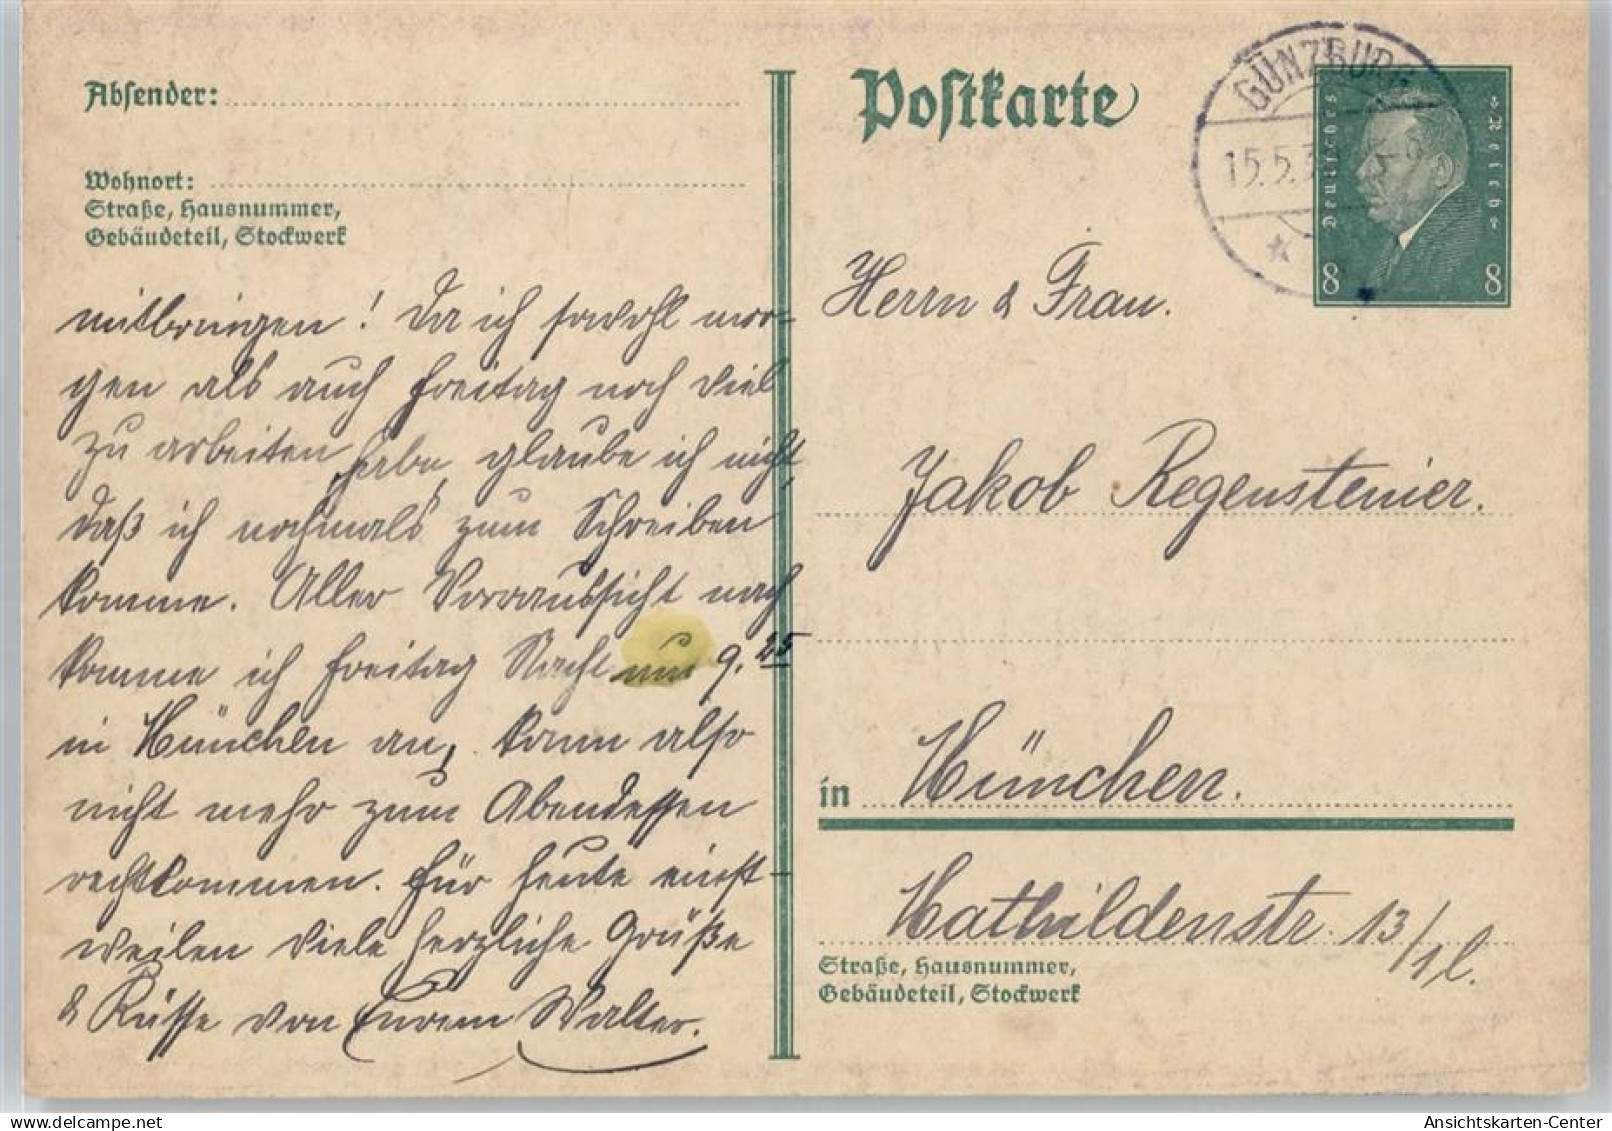 Absender:
Wohnort:
Straße, Hausnummer,
Gebäudeteil, Stockwerk
mitbringen! Da ich sowohl mor-
gen als auch Freitag noch viel
zu arbeiten habe, glaube ich nicht,
daß ich nochmals zum Schreiben
komme. Aller Vorraussicht nach
komme ich Freitag Nacht um 9.25
in München an, kann also
nicht mehr zum Abendessen
rechtkommen. Für heute einst-
weilen viele herzliche Grüße
& Küsse von Eurem Walter.
Postkarte
GÜNZBURG
15.5.3
Deutsches
Reich
8 8
Herrn & Frau.
Jakob Regensteinier.
in München.
Mathildenstr. 13/1l.
Straße, Hausnummer,
Gebäudeteil, Stockwerk
delcampe.net
Ansichtskarten-Center